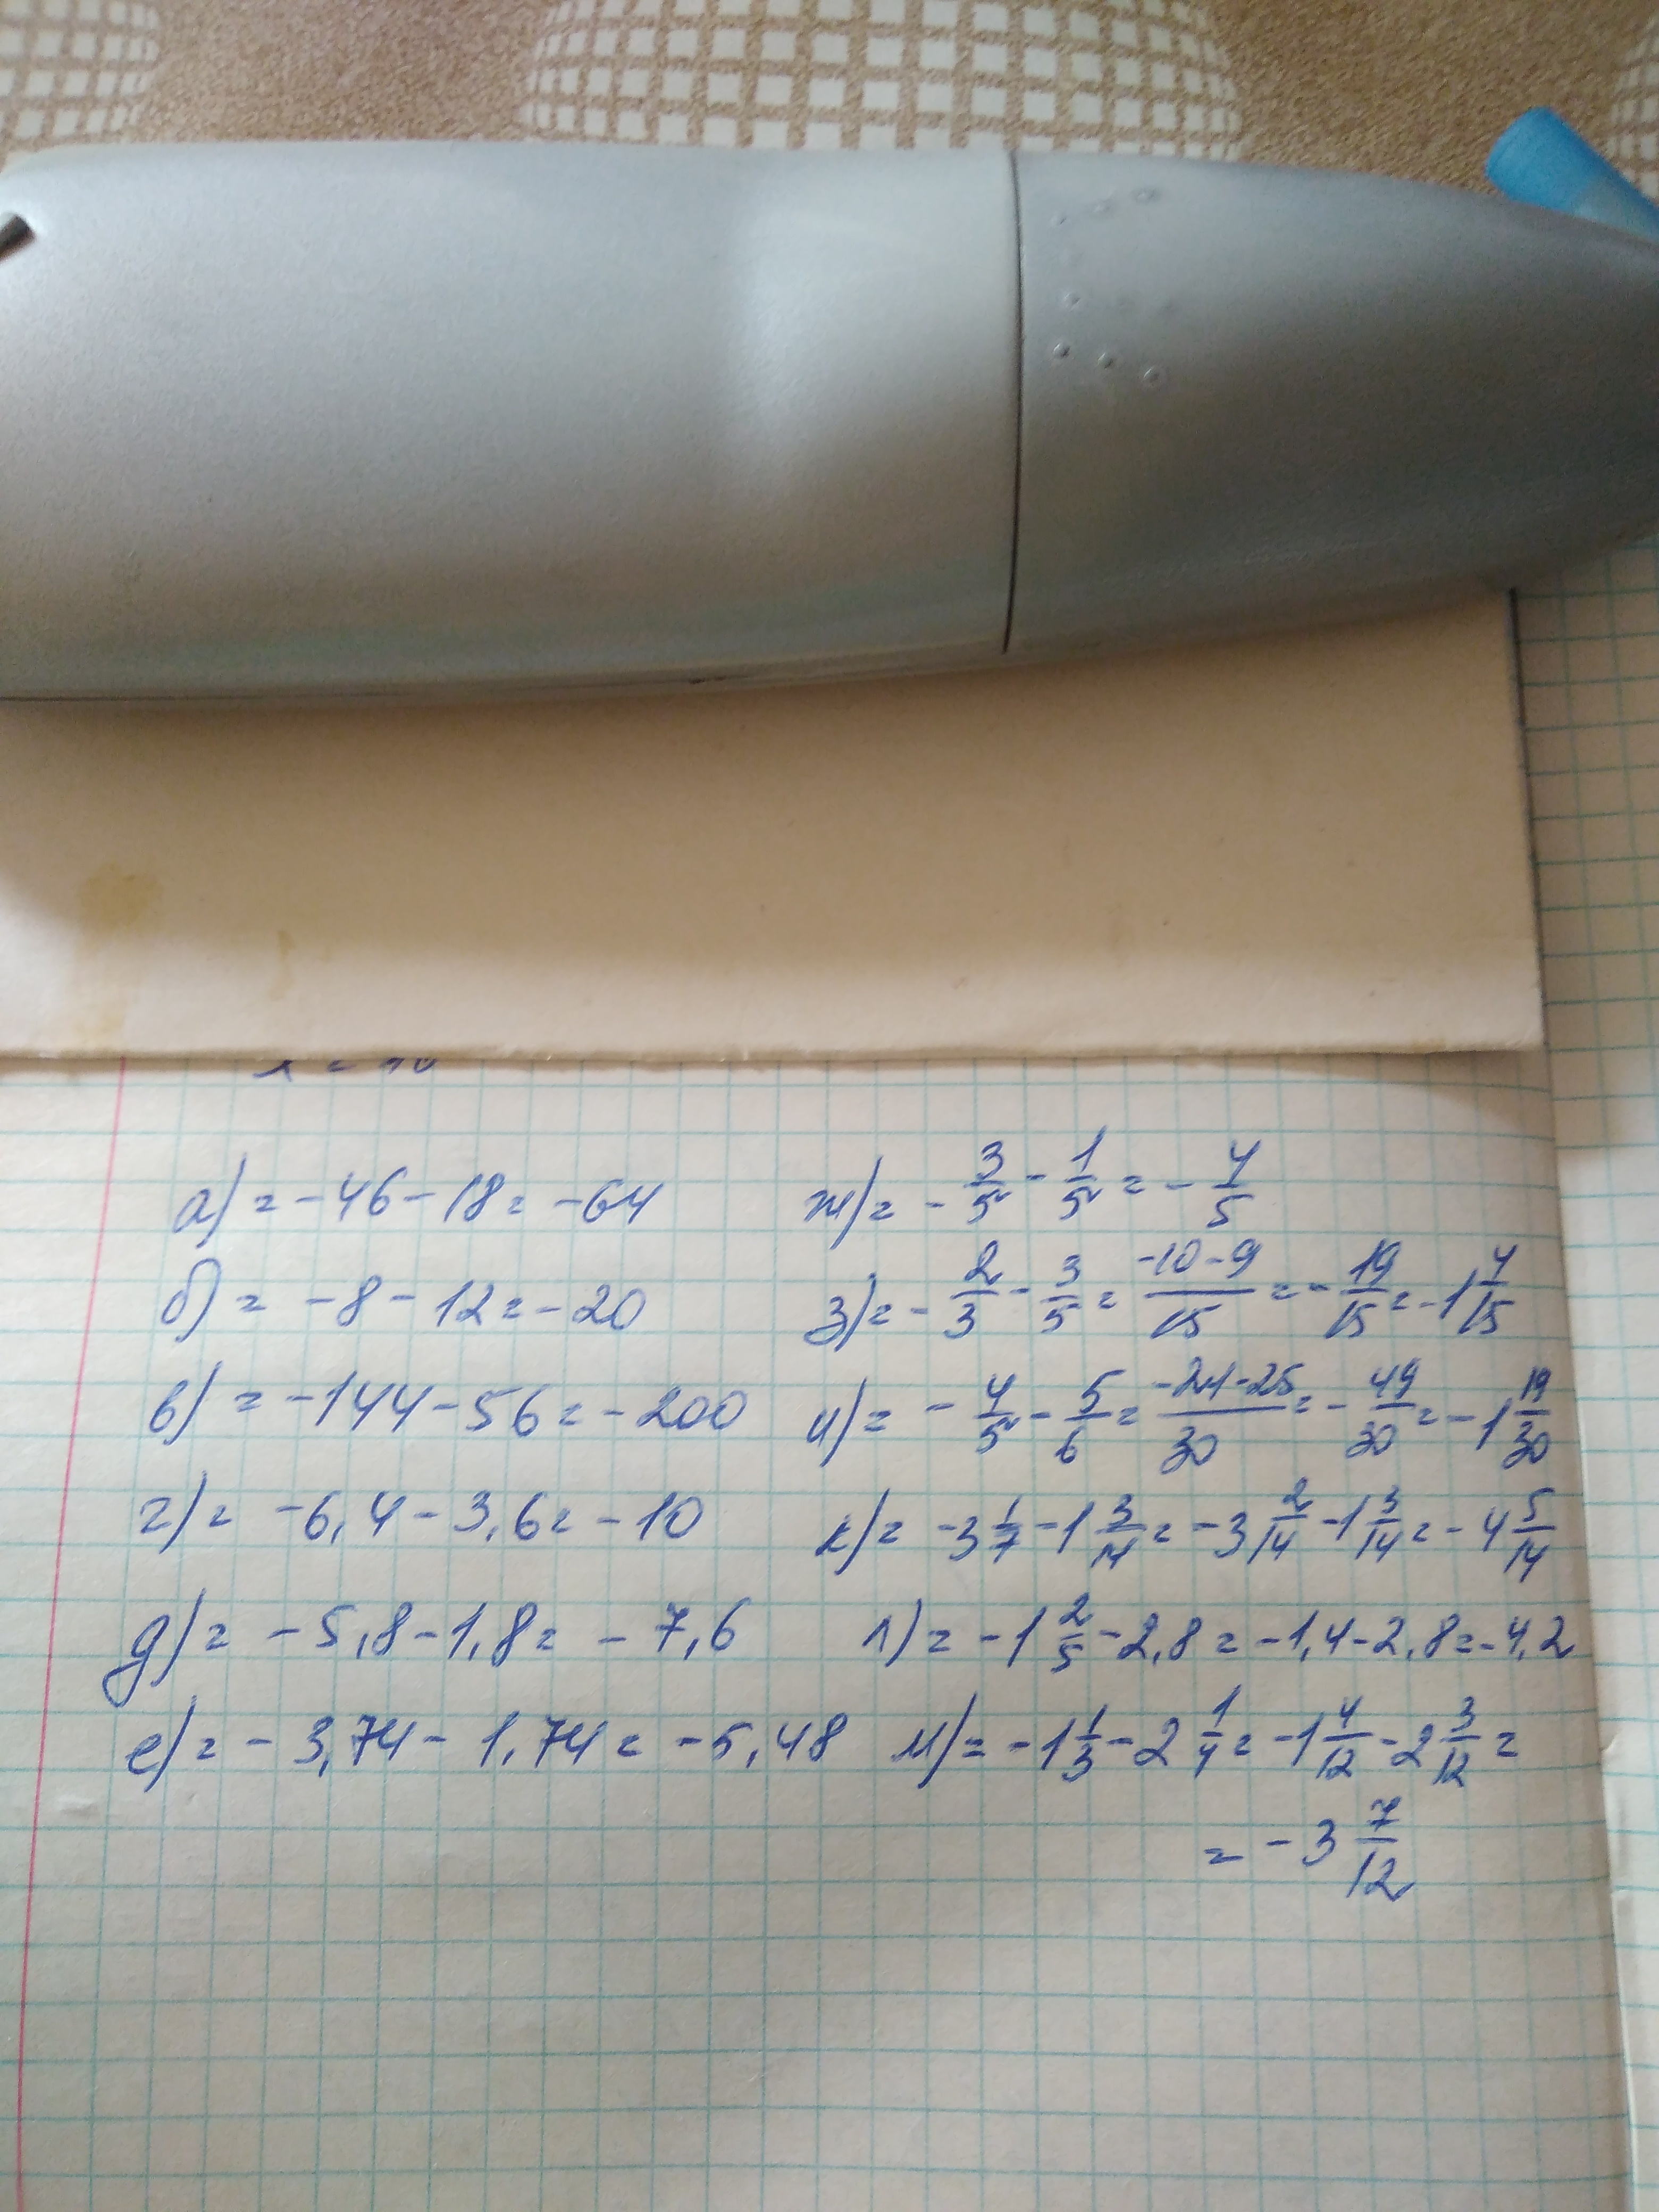 а) = -46 - 18 = -64
б) = -8 - 12 = -20
в) = -144 - 56 = -200
г) = -6,4 - 3,6 = -10
д) = -5,8 - 1,8 = -7,6
е) = -3,74 - 1,74 = -5,48
ж) = - 3/5 - 1/5 = - 4/5
з) = - 2/3 - 3/5 = (-10 - 9)/15 = - 19/15 = -1 4/15
и) = - 4/5 - 5/6 = (-24 - 25)/30 = - 49/30 = -1 19/30
к) = -3 1/7 - 1 3/14 = -3 2/14 - 1 3/14 = -4 5/14
л) = -1 2/5 - 2,8 = -1,4 - 2,8 = -4,2
м) = -1 1/3 - 2 1/4 = -1 4/12 - 2 3/12 =
= -3 7/12